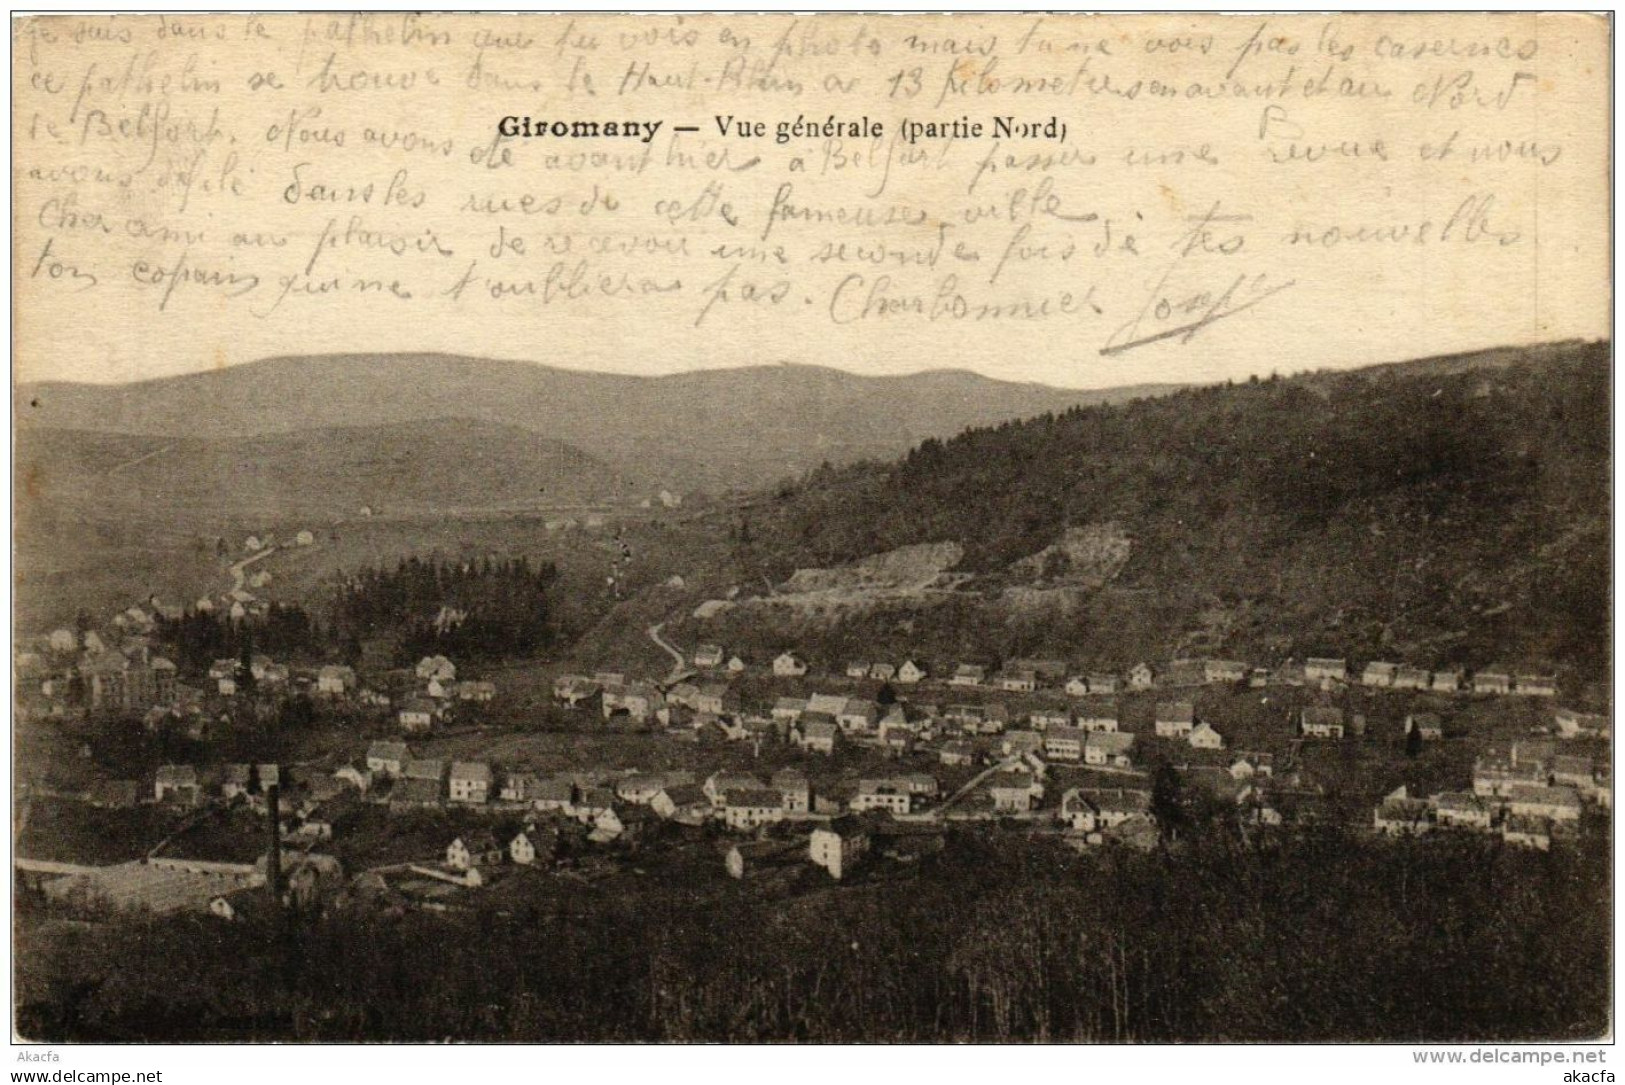 Je suis dans le pathelin que tu vois en photo mais tu ne vois pas les casernes
ce pathelin se trouve dans le Haut-Rhin a 13 Kilometres en avant et au Nord
de Belfort. Nous avons été avant hier à Belfort passer une revue et nous
Giromany — Vue générale (partie Nord)
avons défilé dans les rues de cette fameuse ville
Cher ami au plaisir de recevoir une seconde fois de tes nouvelles
ton copain qui ne t'oubliera pas. Charbonnier Joseph
Akacfa
www.delcampe.net
www.delcampe.com
akacfa